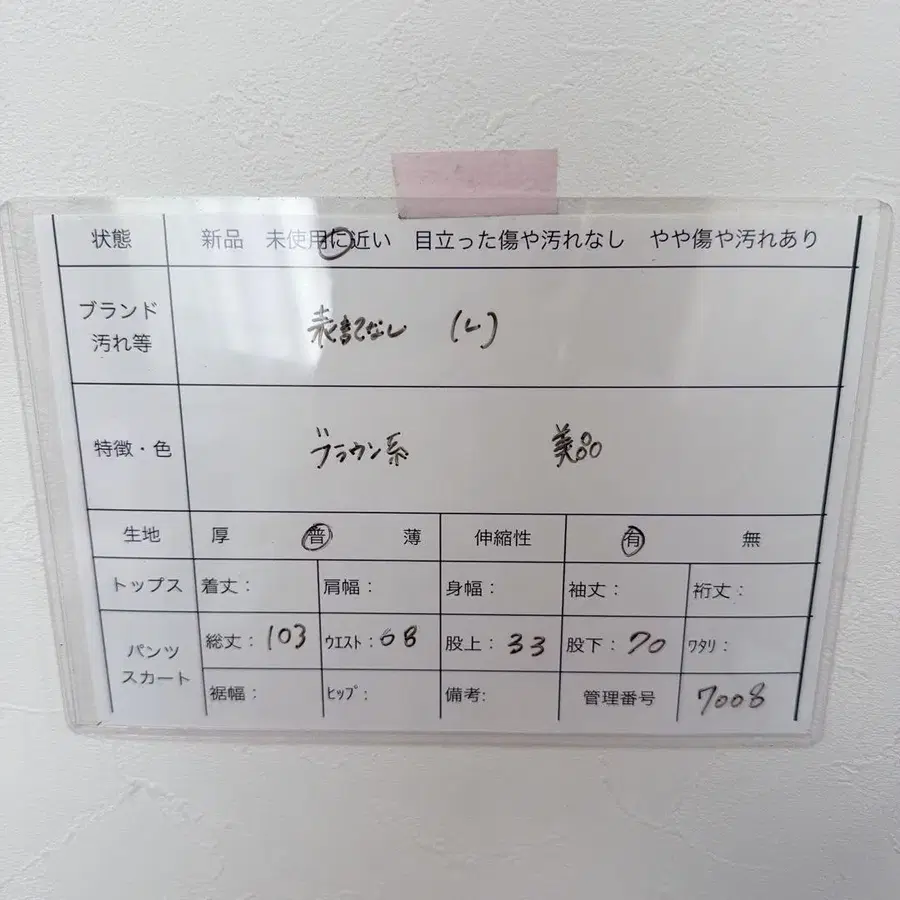 状態 新品 未使用に近い 目立った傷や汚れなし やや傷や汚れあり
ブランド
汚れ等 表記なし (L)
特徴・色 ブラウン系 美品
生地 厚 普 薄 伸縮性 有 無
トップス 着丈: 肩幅: 身幅: 袖丈: 裄丈:
パンツ
スカート 総丈:103 ウエスト:68 股上:33 股下:70 ワタリ:
裾幅: ヒップ: 備考: 管理番号 7008